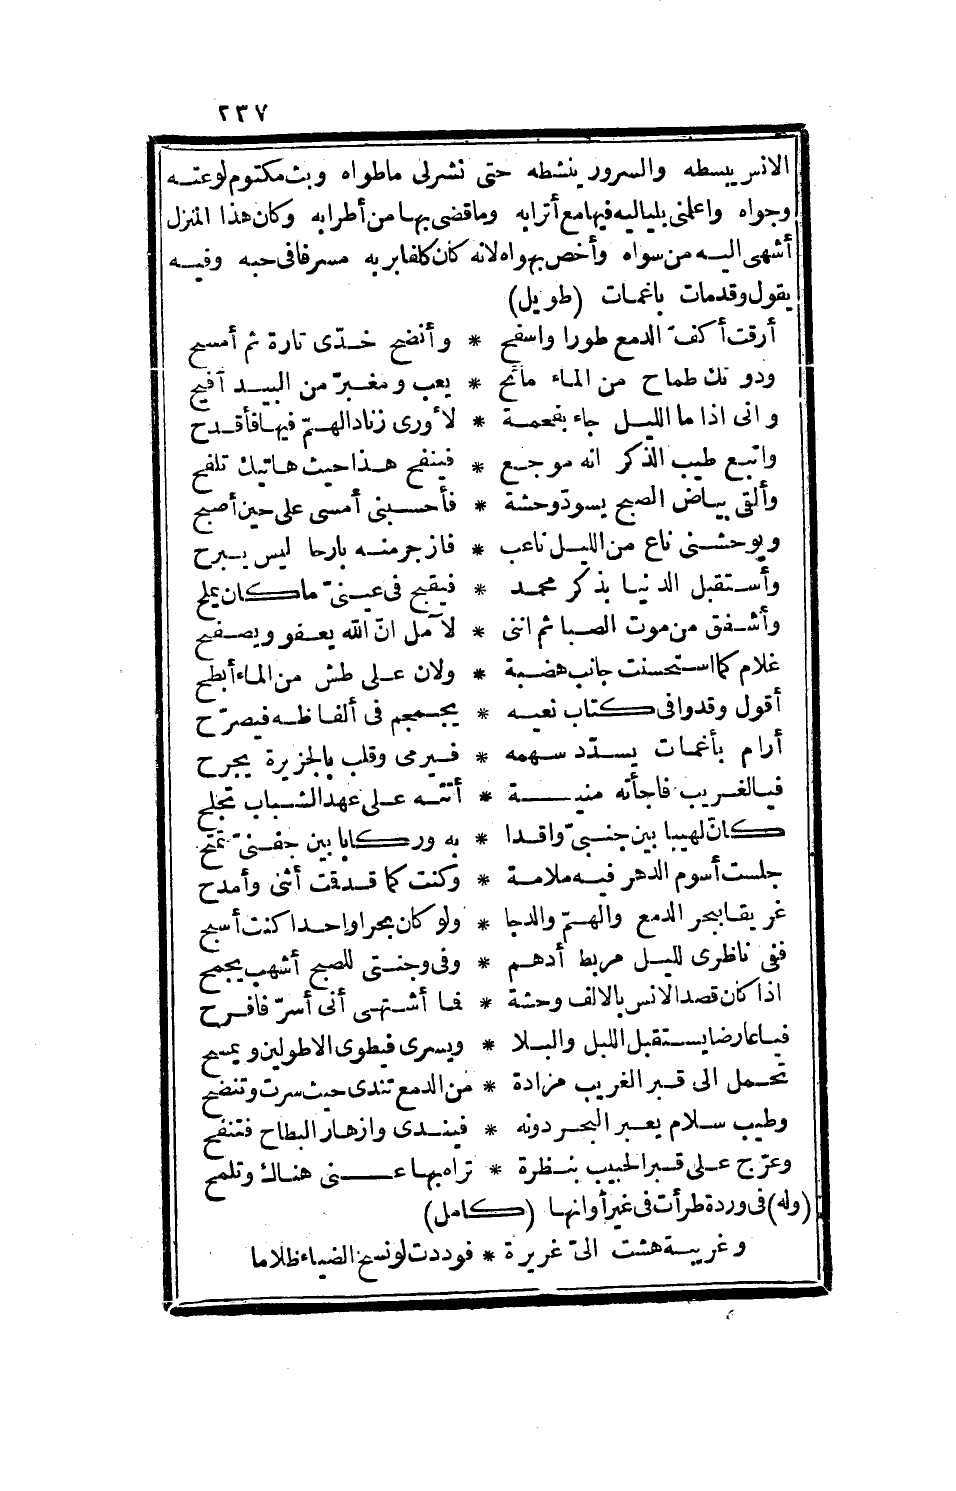 ٢٣٧
الانس يبسطه والسرور ينشطه حتى نشر لى ماطواه وبث مكتوم لوعتــه
وجواه واعلمنى بلياليه فيها مع أترابه وماقضى بهـا من أطرابه وكان هذا المنزل
أشهى اليــه من سواه وأخص بهواه لانه كان كلفا بربه مسرفا فى حبه وفيــه
يقول وقد مات باغمات (طويل)
أرقت أكفّ الدمع طورا واسفح * وأنضح خــدّى تارة ثم أمسح
ودونك طماح من الماء مائح * يعب ومغبرّ من البيــد أفيح
وانى اذا ما الليــل جاء بفحمــة * لأورى زناد الهــمّ فيهـا فأقــدح
واتبع طيب الذكر انه موجــع * فينفح هــذا حيث هاتيك تلفح
وألقى بياض الصبح يسودّ وحشة * فأحســبنى أمسى على حين أصبح
ويوحشــنى ناع من الليــل ناعب * فازجر منــه بارحا ليس يــبرح
وأســتقبل الدنيـا بذكر محمــد * فيقبح فى عيــنىّ ماكــان يملح
وأشــفق من موت الصبـا ثم اننى * لآمل انّ الله يعــفو ويصــفح
غلام كما استحسنت جانب هضبــة * ولان عــلى طش من المـاء أبطح
أقول وقد وافى كــتاب نعيــه * يجــمجم فى ألفـاظــه فيصرّح
أرام بأغمـات يســدّد ســهمه * فــيرمى وقلب بالجزيرة يجرح
فيــا لغــريب فاجأته منيــــة * أتتــه عــلى عهد الشــباب تجلح
كــانّ لهيبـا بين جنــبىّ واقــدا * به وركــايا بين جفــنىّ تمتح
جلست أسوم الدهر فيــه ملامــة * وكنت كما قــد قت أثنى وأمدح
غريقــا ببحر الدمع والهــمّ والدجا * ولو كان بحرا واحــدا كنت أسبح
ففى ناظرى لليــل مربط أدهــم * وفى وجنــتى للصبح أشهب يجمح
اذا كان قصد الانس بالالف وحشة * فما أشــتهــى أنى أسرّ فافــرح
فيــا عارضا يســتقبل الليل والبــلا * ويسرى فيطوى الاطولين ويمسح
تحــمل الى قــبر الغريب مزادة * من الدمع تندى حيث سرت وتنضح
وطيب ســلام يعــبر البحــر دونه * فينــدى وازهار البطاح فتنفح
وعرّج عــلى قــبر الحبيب بنــظرة * تراه بهـا عــــنى هنــاك وتلمح
(وله) فى وردة طرأت فى غير أوانهـا (كــامل)
وغريبــة هشت الىّ غريرة * فوددت لو نسج الضياء ظلاما